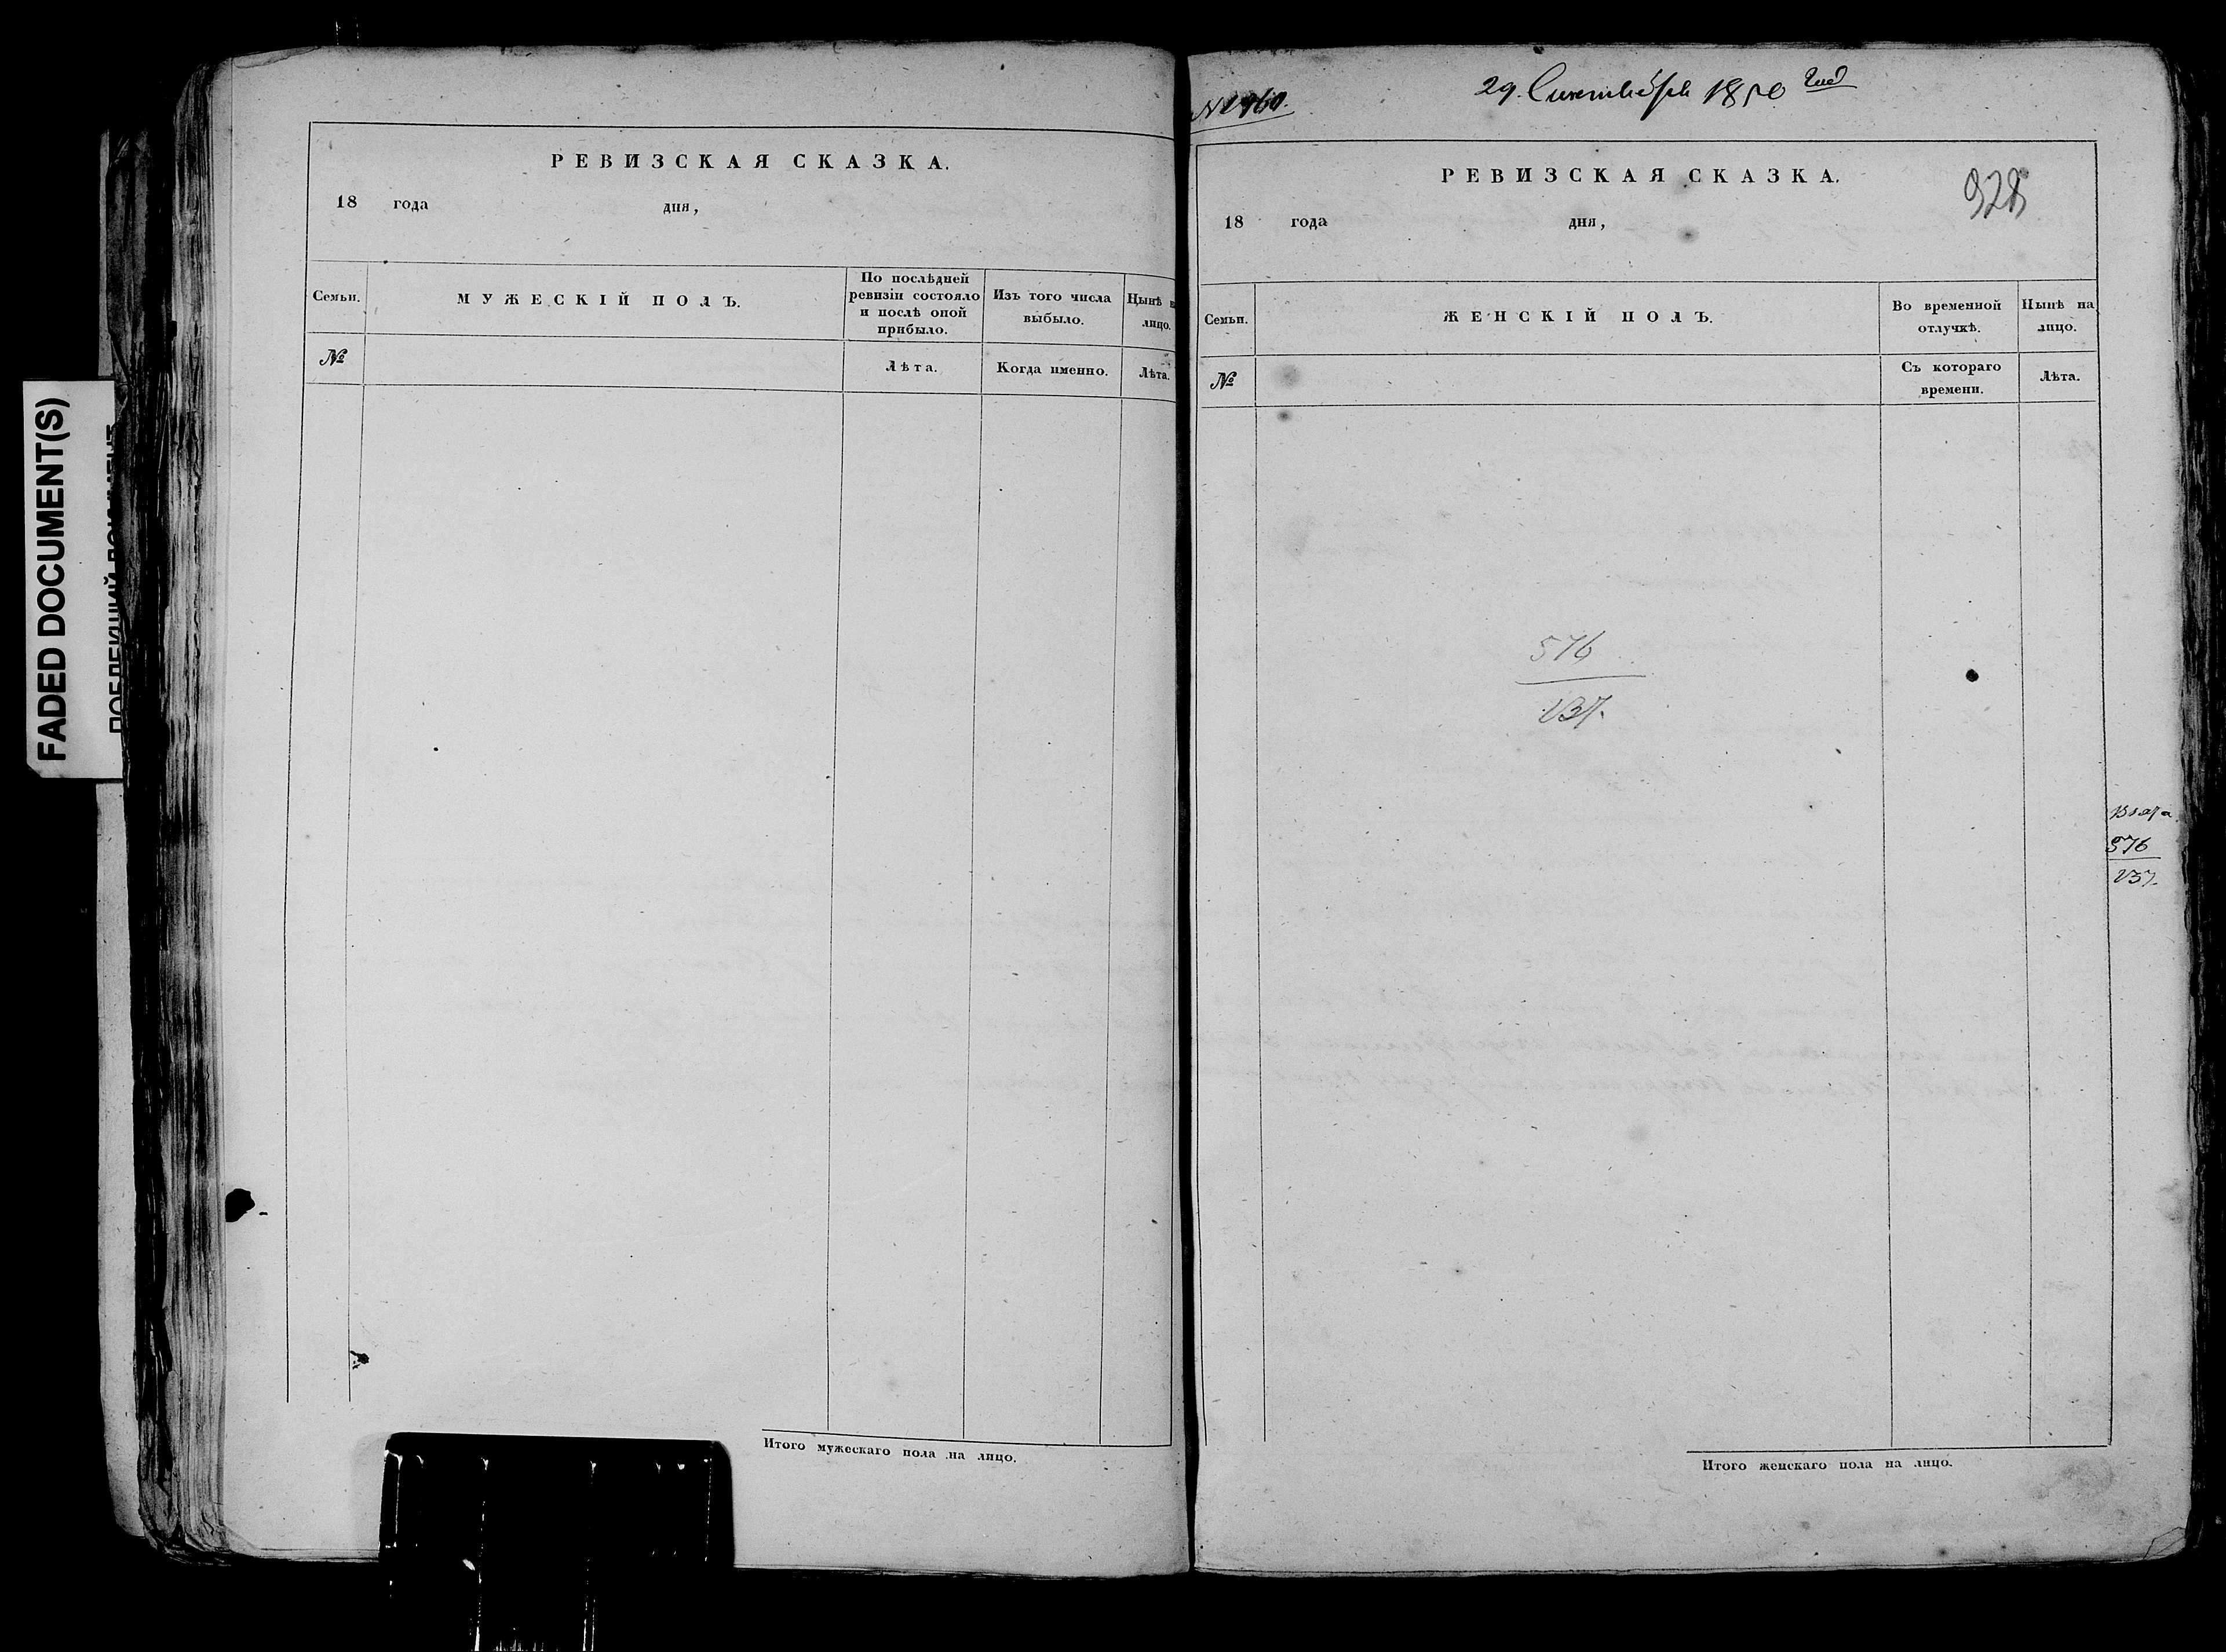 FADED DOCUMENT(S)
РЕВИЗСКАЯ СКАЗКА.
18 года дня,
Семьи.
МУЖЕСКІЙ ПОЛЪ.
По послѣдней
ревизіи состояло
и послѣ оной
прибыло.
Изъ того числа
выбыло.
Нынѣ
лицо.
№
Лѣта.
Когда именно.
Лѣта.
Итого мужескаго пола на лицо.
29. Сентября 1850 года
РЕВИЗСКАЯ СКАЗКА.
18 года дня,
Семьи.
ЖЕНСКІЙ ПОЛЪ.
Во временной
отлучкѣ.
Нынѣ на
лицо.
№
Съ котораго
времени.
Лѣта.
576
576
Итого женскаго пола на лицо.